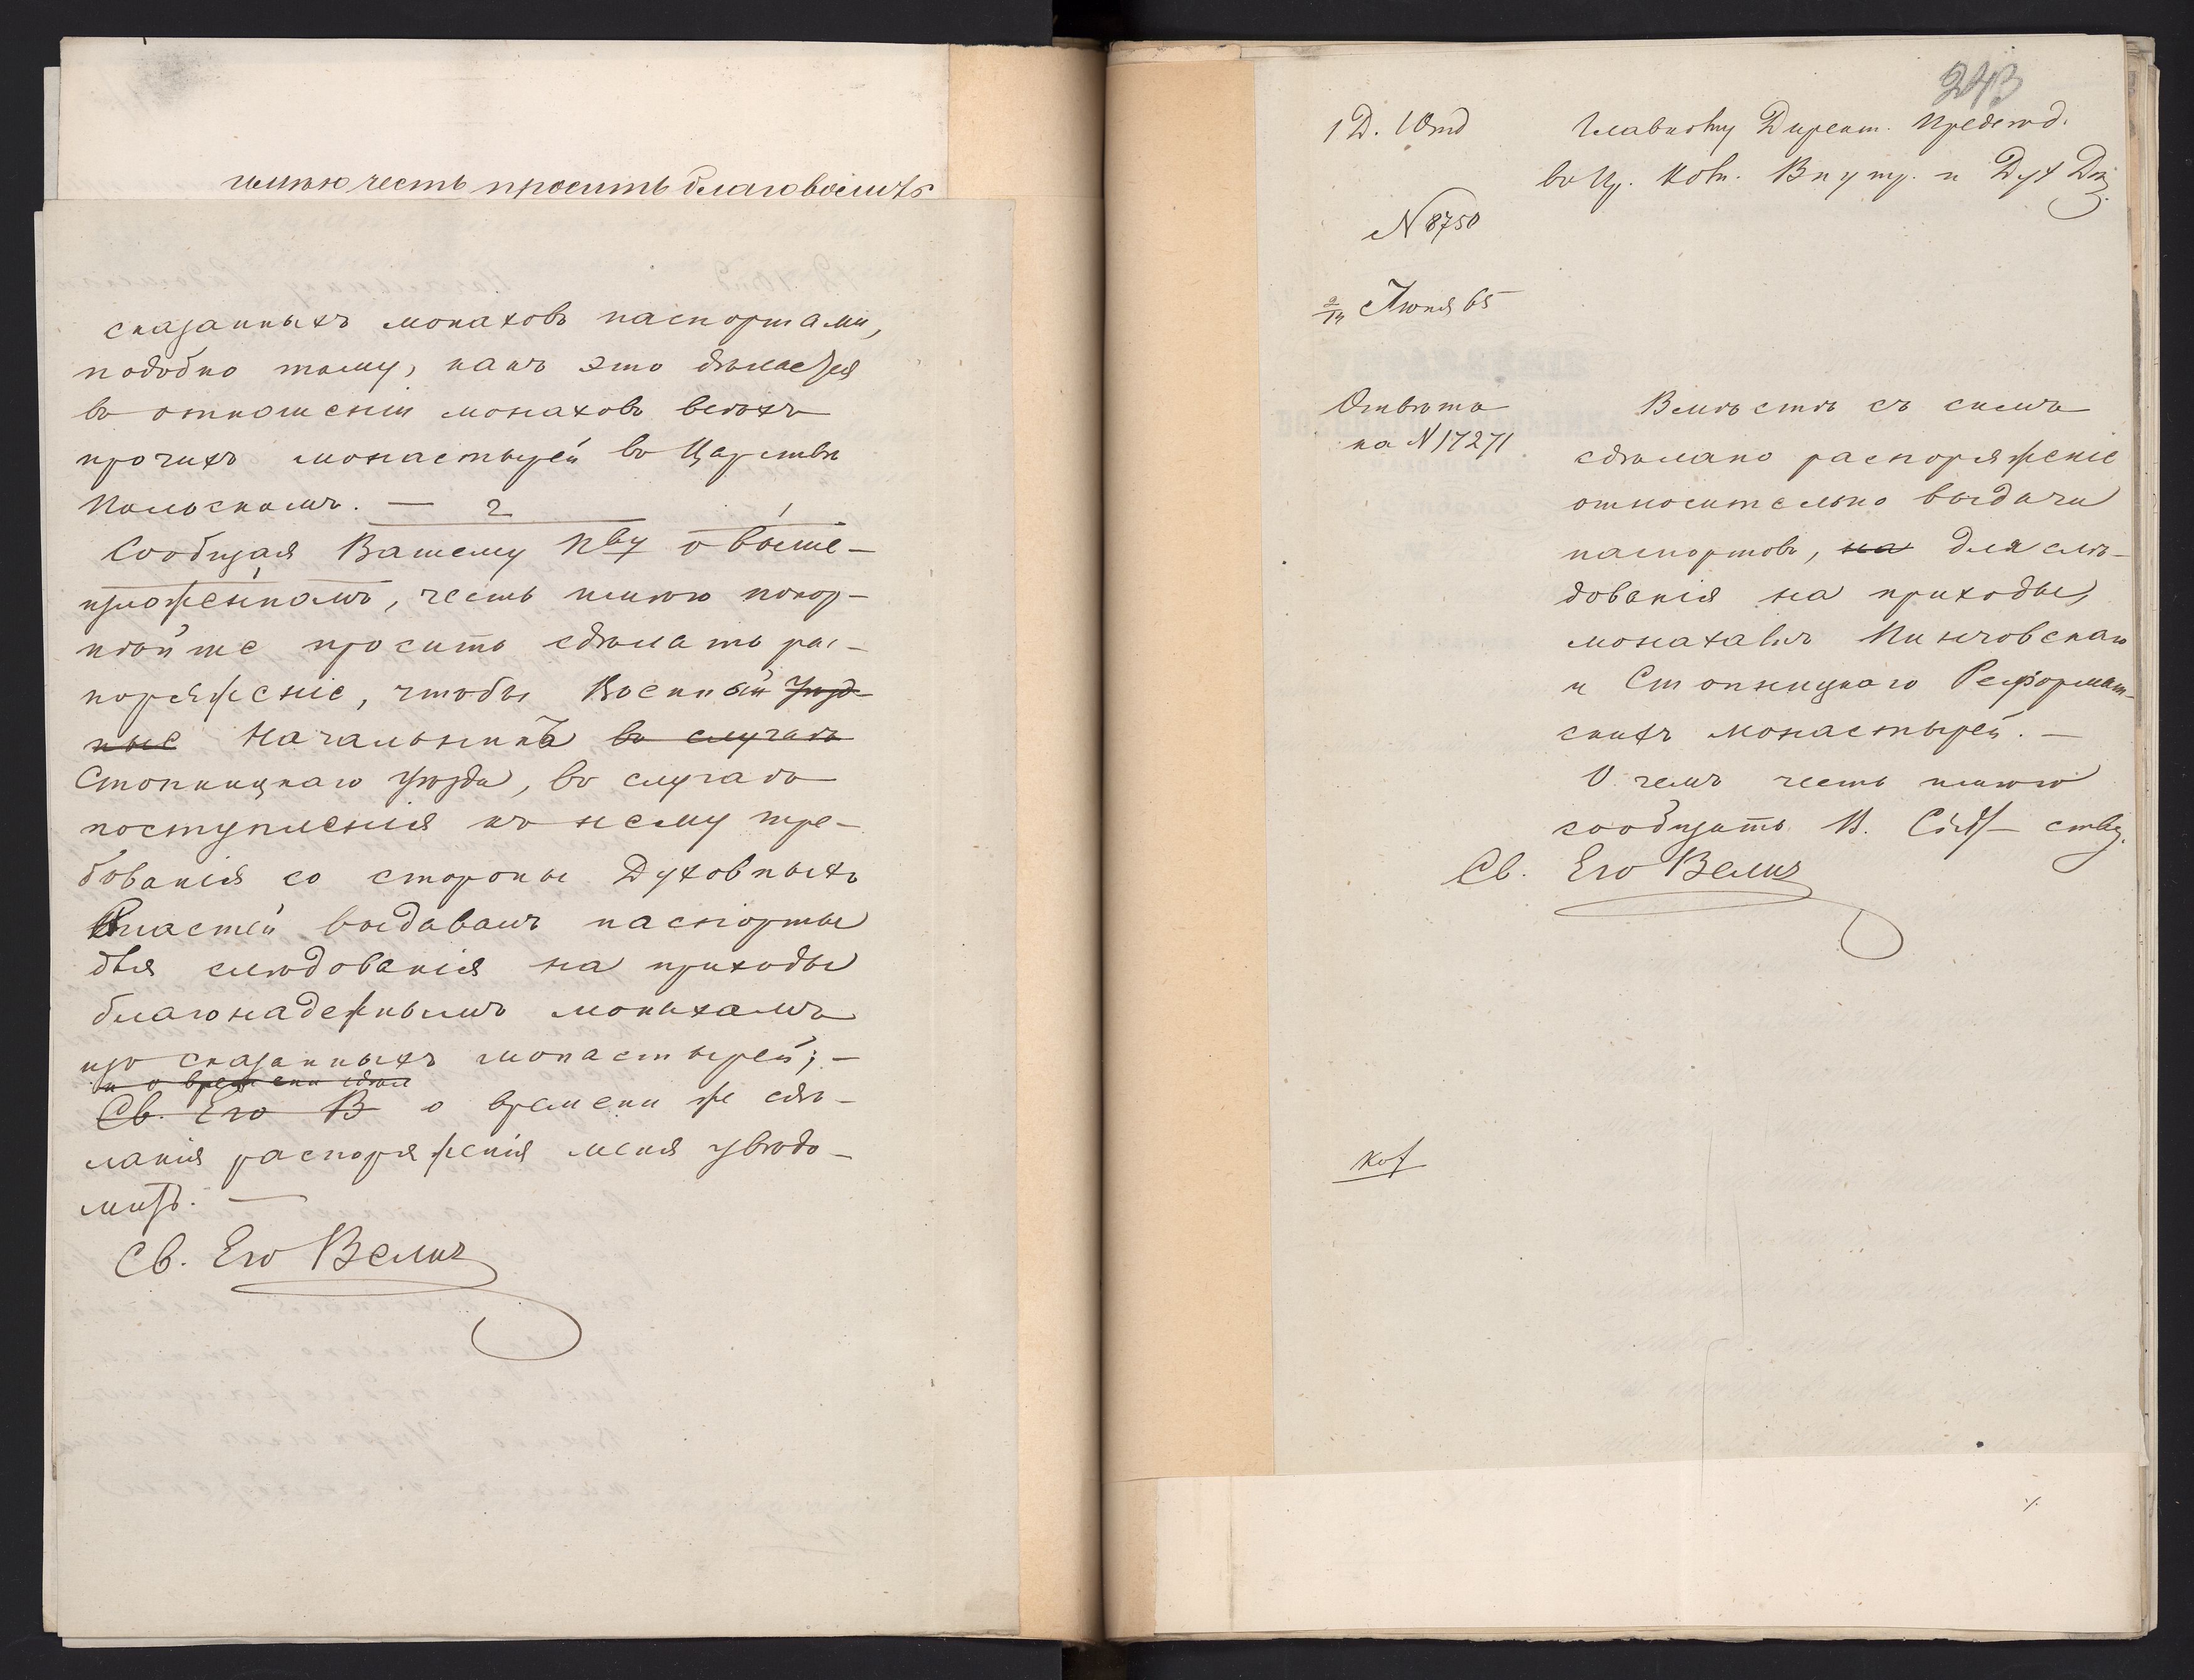 имѣю честь просить благоволить
сказанныхъ монаховъ паспортами,
подобно тому, какъ это дѣлается
въ отношеніи монаховъ всѣхъ
прочихъ монастырей въ Царствѣ
Польскомъ. —
2 1
Сообщая Вашему Пву о выше-
изложенномъ, честь имѣю покор-
нѣйше просить сдѣлать рас-
поряженіе, чтобы Военный Уѣзд-
ные Начальникъ въ случаѣ
Стопницкаго Уѣзда, въ случаѣ
поступленія къ нему тре-
бованія со стороны Духовныхъ
Властей выдавалъ паспорты
для слѣдованія на приходы
благонадежнымъ монахамъ
изъ сказанныхъ монастырей; —
и о времени сдѣл
Св. Его В о времени же сдѣ-
ланія распоряженія меня увѣдо-
мить. —
Св. Его Велич
243
1 Д. 1 Отд
Главному Директ. Предсѣд.
въ Пр. Ком. Внутр. и Дух Дѣл.
N 8750
2/14 Іюня 65
Отвѣтъ
на N 17271
Вмѣстѣ съ симъ
сдѣлано распоряженіе
относительно выдачи
паспортовъ, на для слѣ-
дованія на приходы,
монахамъ Пинчовскаго
и Стопницкаго Реформат-
скихъ монастырей. —
О чемъ честь имѣю
сообщить В. Сіят— ству.
Св. Его Велич